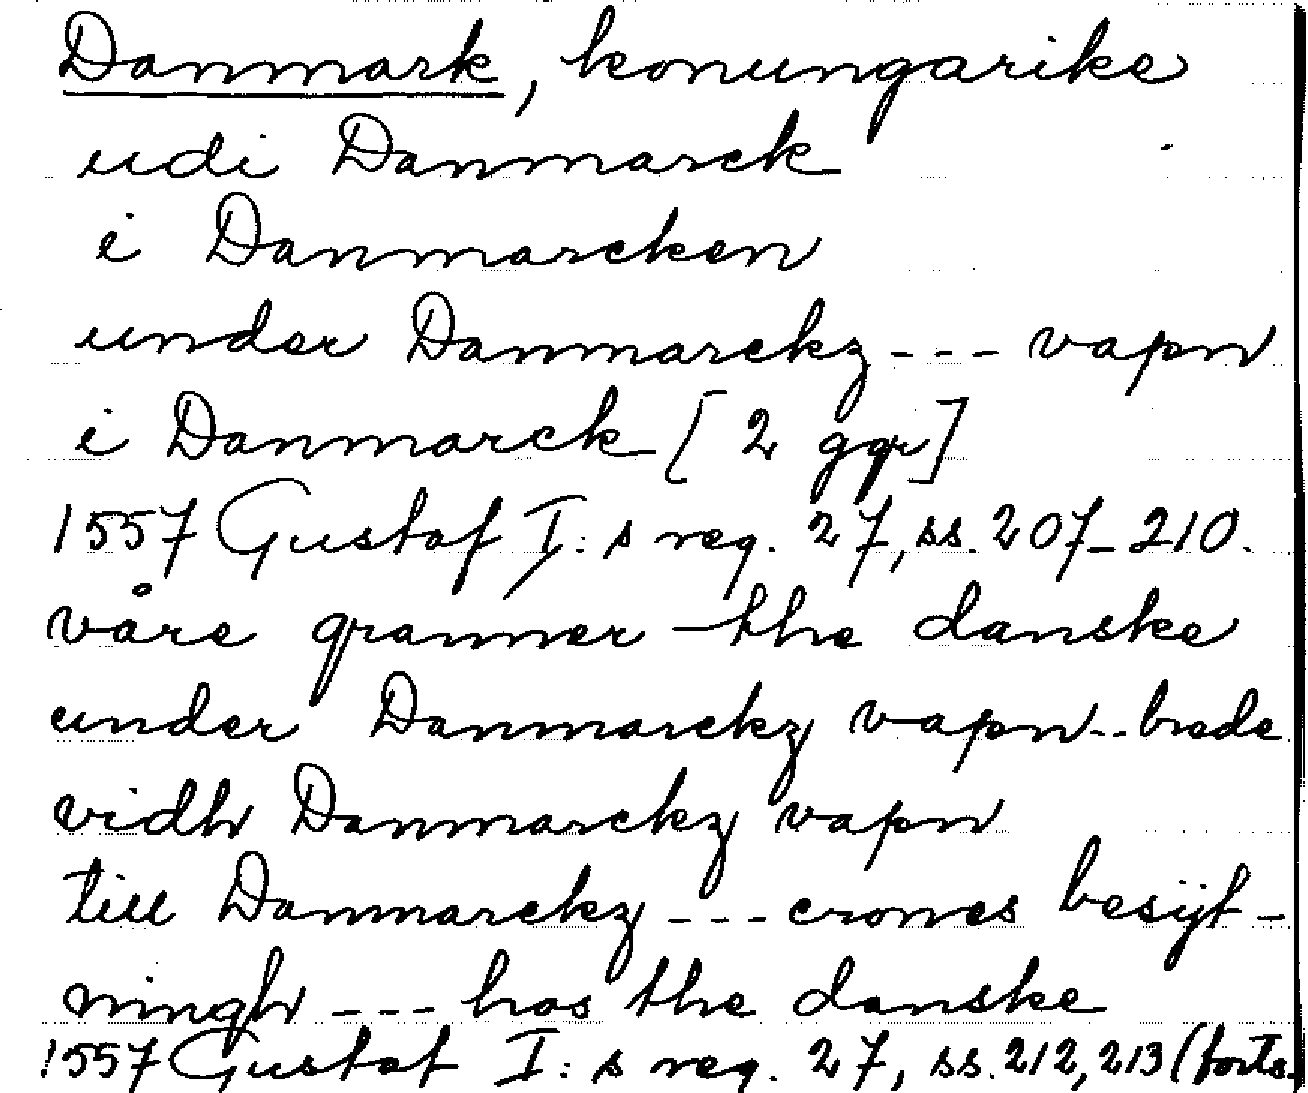 Danmark, konungarike
udi Danmarck
i Danmarcken
under Danmarckz --- vapn
i Danmarck [2 ggr]
1557 Gustaf I:s reg. 27, ss. 207-210.
våre granner the danske
under Danmarckz vapn -- brede
vidh Danmarckz vapn
till Danmarckz --- crones besijt-
ningh --- hos the danske
1557 Gustaf I:s reg. 27, ss. 212, 213 (forts.